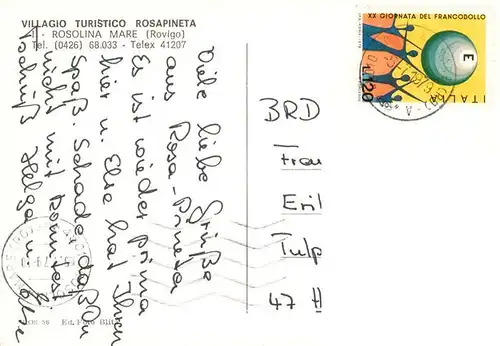 VILLAGIO TURISTICO ROSAPINETA
- ROSOLINA MARE (Rovigo)
Tel. (0426) 68.033 - Telex 41207
Viele liebe Grüße
aus Rosa-Pineta
Es ist wieder prima
hier u. Else hat Ihren
Spaß. Schade daß Du
nicht mit konntest.
Helga u. Else
BRD
Frau
Tulp
47 H
XX GIORNATA DEL FRANCOBOLLO
E
ITALIA
L.120
Ed. Foto